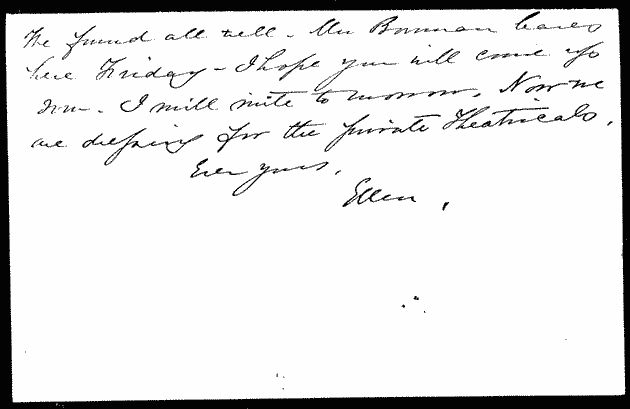 We found all well - Mrs Bowman leaves
here Friday - I hope you will come up
I will write to morrow. Now we
are dressing for the private Theatricals.
Ever yours,
Ellen.